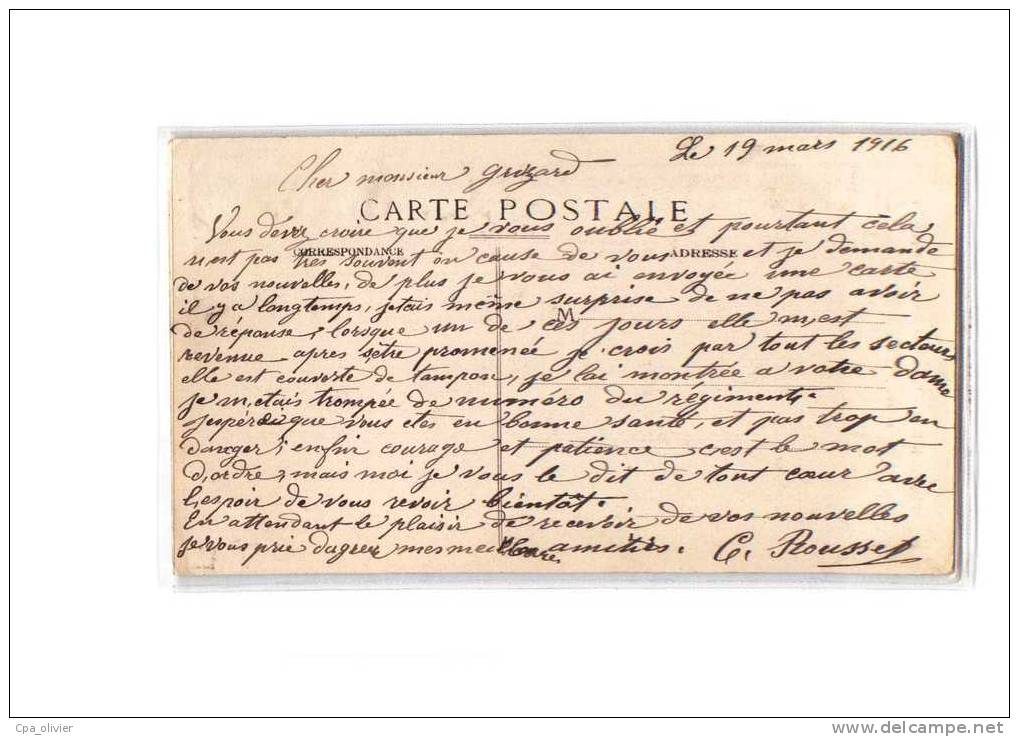 Le 19 mars 1916
Cher monsieur Grizard
CARTE POSTALE
Vous devez croire que je vous oublie et pourtant cela
CORRESPONDANCE
ADRESSE
n'est pas très souvent on cause de vous et je demande
de vos nouvelles, de plus je vous ai envoyée une carte
il y a longtemps, jetais même surprise de ne pas avoir
M
de réponse, lorsque un de ces jours elle m,est
revenue apres s,être promenée je crois par tout les secteurs
elle est couverte de tampon, je l'ai montrée a votre dame
je m,etais trompée de numéro du régiment.
j'espère que vous etes en bonne santé, et pas trop en
danger; enfin courage et patience c,est le mot
d,ordre, mais moi je vous le dit de tout cœur avec
l,espoir de vous revoir bientôt.
En attendant le plaisir de recevoir de vos nouvelles
je vous prie d'agréer mes meilleures amitiés. C. Rousset
Cpa_olivier
www.delcampe.net